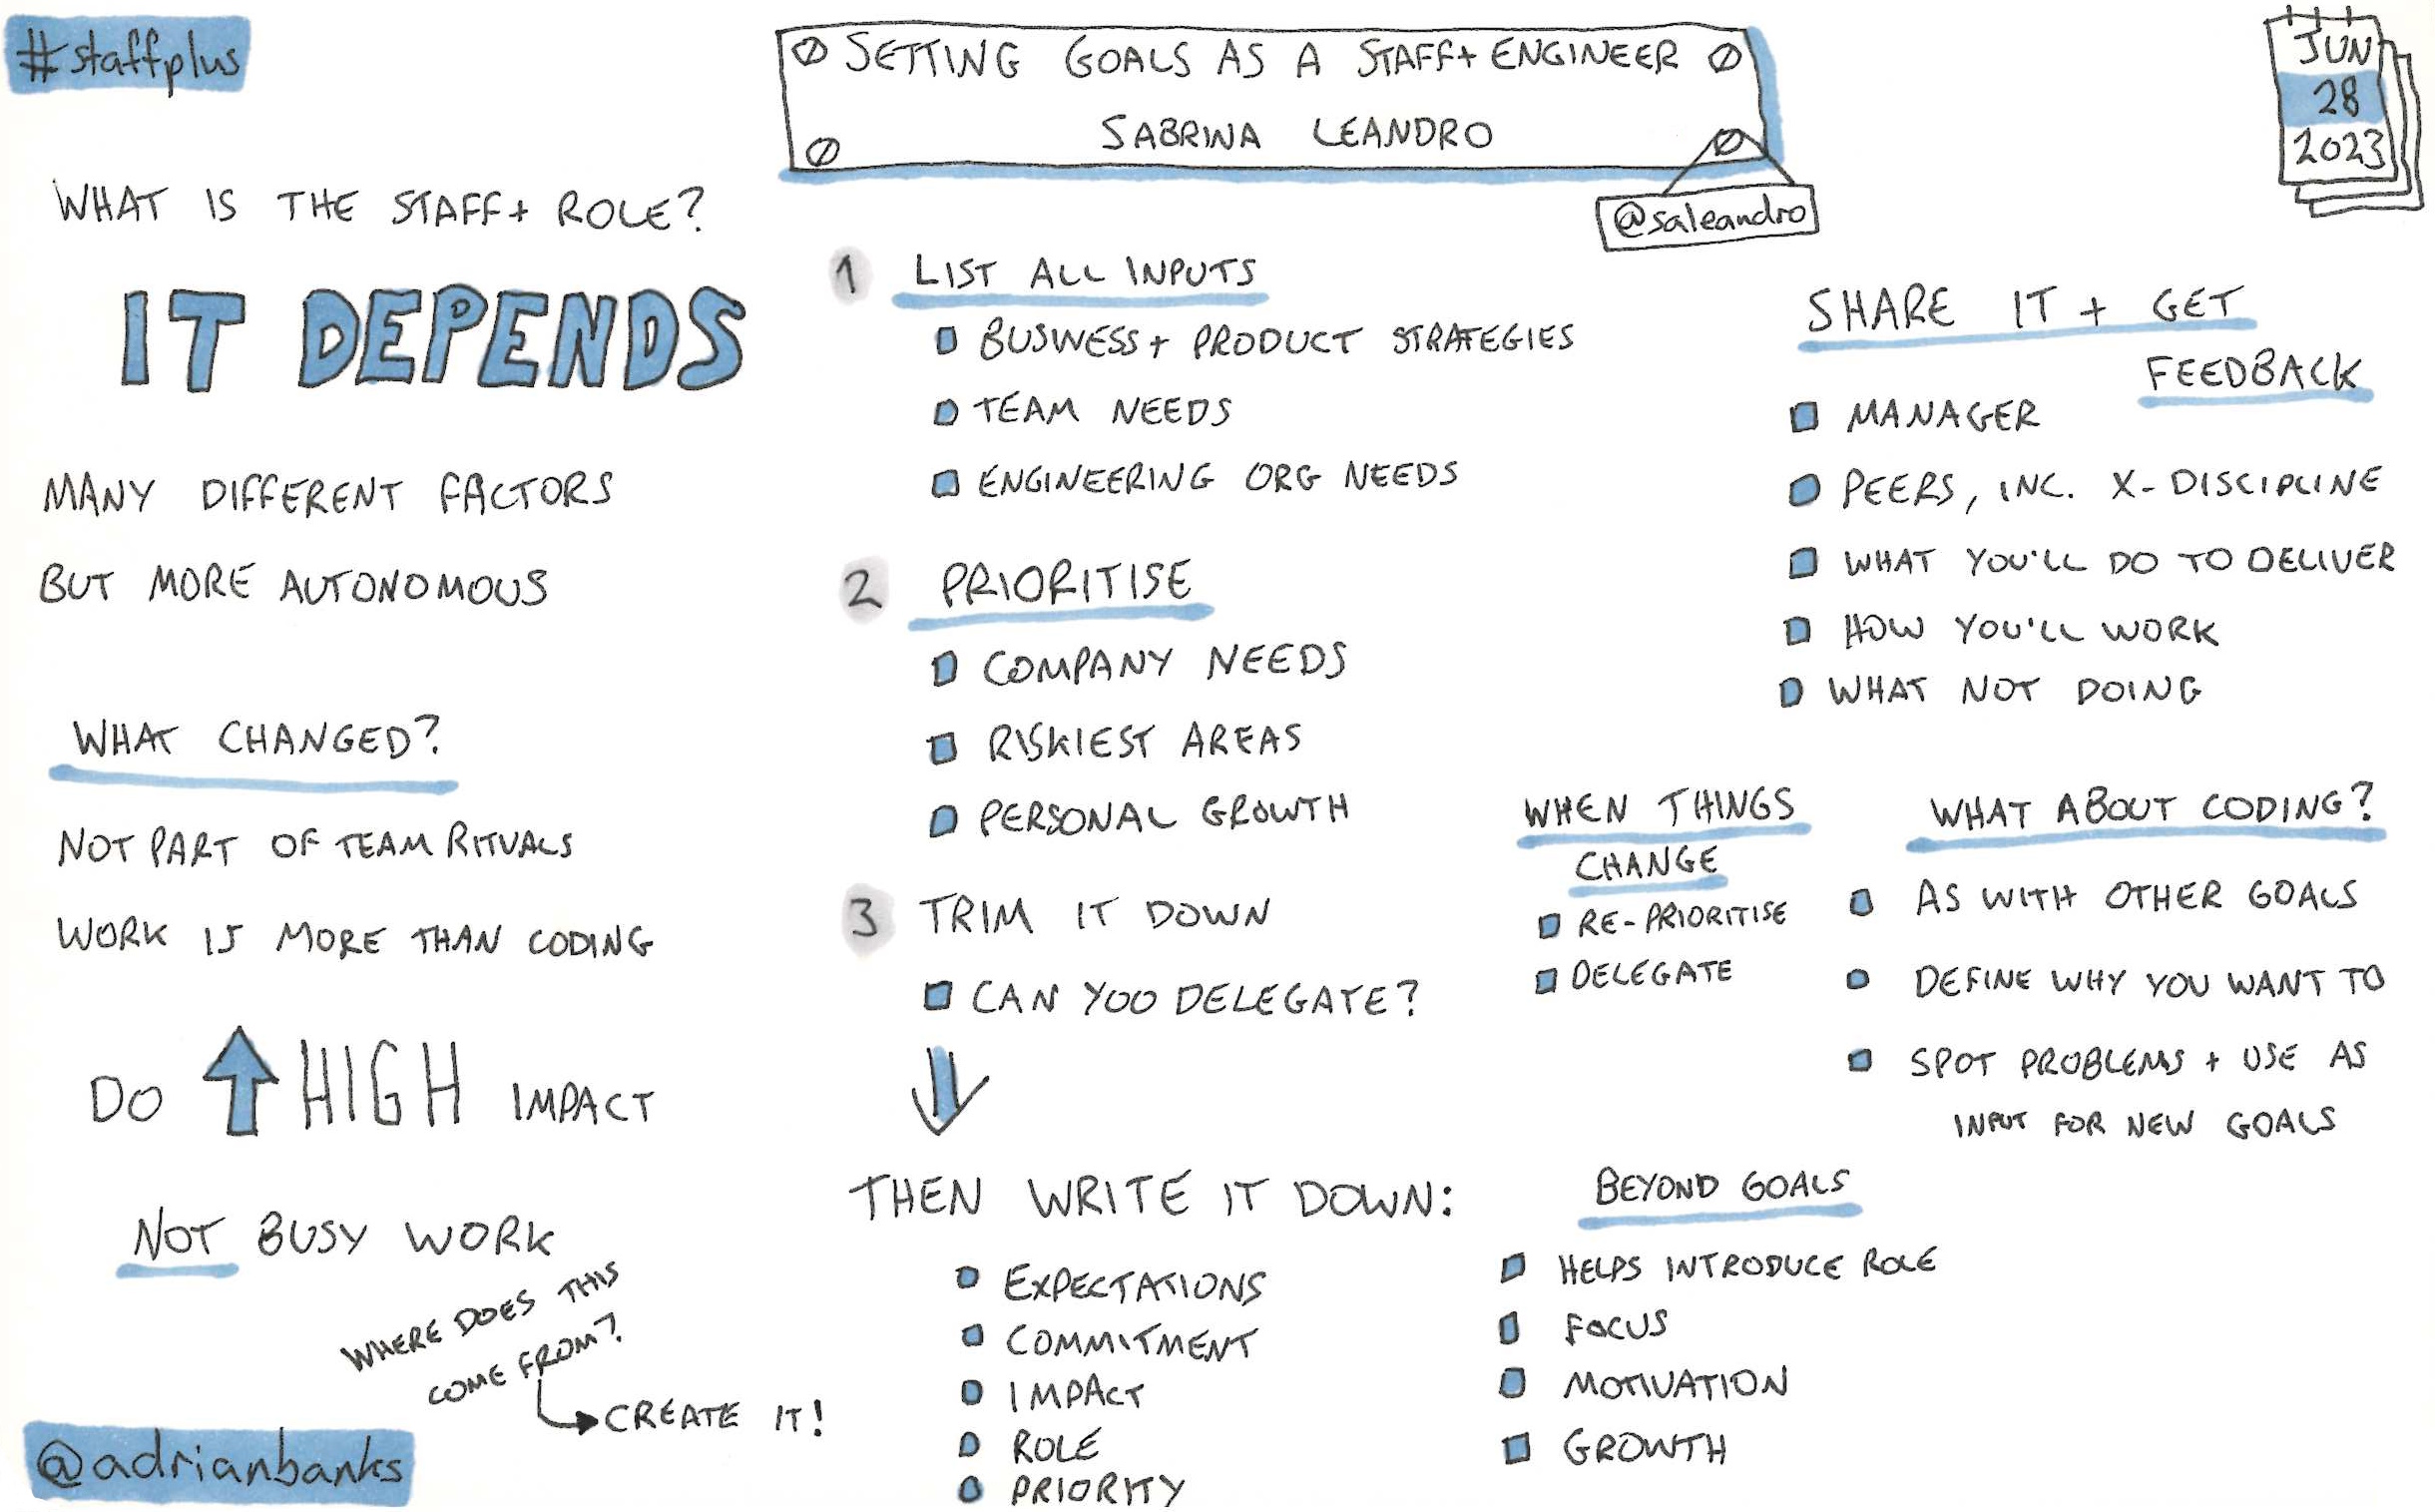 #staffplus
SETTING GOALS AS A STAFF+ ENGINEER
SABRINA LEANDRO
@saleandro
JUN
28
2023
WHAT IS THE STAFF+ ROLE?
IT DEPENDS
MANY DIFFERENT FACTORS
BUT MORE AUTONOMOUS
WHAT CHANGED?
NOT PART OF TEAM RITUALS
WORK IS MORE THAN CODING
DO HIGH IMPACT
NOT BUSY WORK
WHERE DOES THIS
COME FROM?
CREATE IT!
@adrianbanks
1 LIST ALL INPUTS
BUSINESS + PRODUCT STRATEGIES
TEAM NEEDS
ENGINEERING ORG NEEDS
2 PRIORITISE
COMPANY NEEDS
RISKIEST AREAS
PERSONAL GROWTH
3 TRIM IT DOWN
CAN YOU DELEGATE?
THEN WRITE IT DOWN:
EXPECTATIONS
COMMITMENT
IMPACT
ROLE
PRIORITY
SHARE IT + GET
FEEDBACK
MANAGER
PEERS, INC. X-DISCIPLINE
WHAT YOU'LL DO TO DELIVER
HOW YOU'LL WORK
WHAT NOT DOING
WHEN THINGS
CHANGE
RE-PRIORITISE
DELEGATE
WHAT ABOUT CODING?
AS WITH OTHER GOALS
DEFINE WHY YOU WANT TO
SPOT PROBLEMS + USE AS
INPUT FOR NEW GOALS
BEYOND GOALS
HELPS INTRODUCE ROLE
FOCUS
MOTIVATION
GROWTH